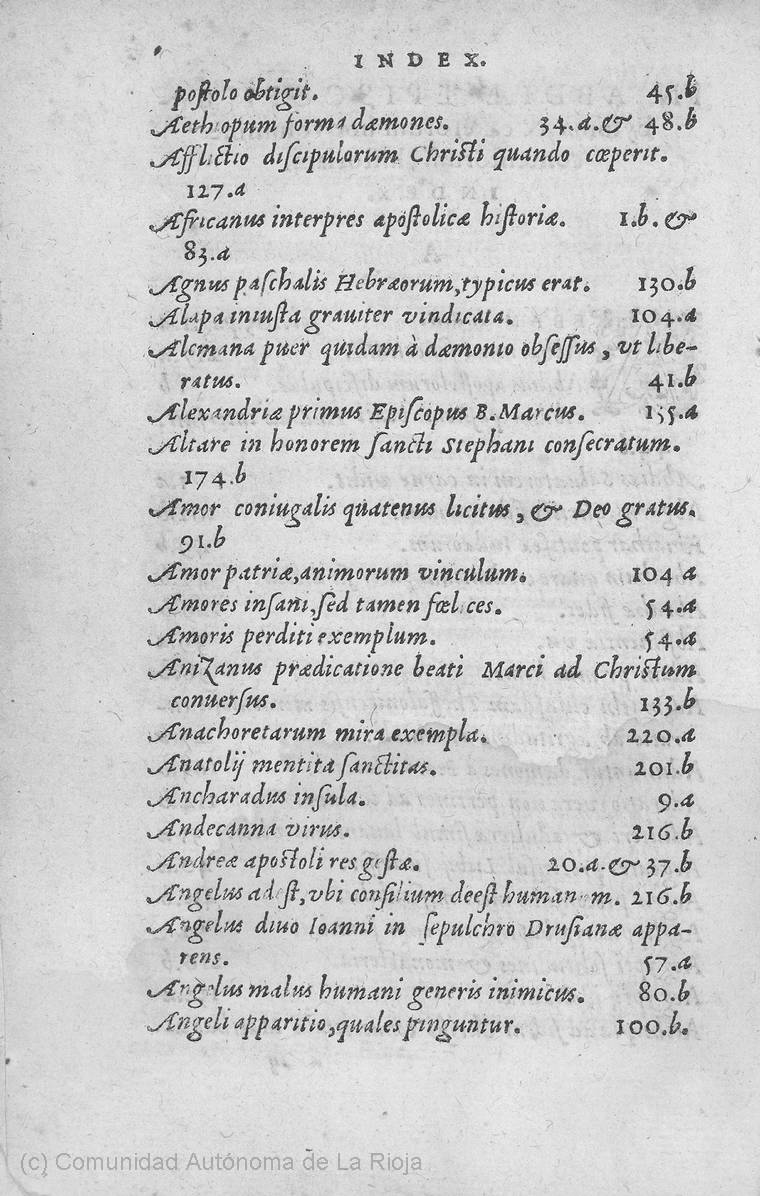 INDEX.
postolo obtigit. 45.b
Aethiopum forma dæmones. 34.a.& 48.b
Afflictio discipulorum Christi quando cœperit.
127.a
Africanus interpres apostolicæ historiæ. 1.b. &
83.a
Agnus paschalis Hebræorum, typicus erat. 130.b
Alapa iniusta grauiter vindicata. 104.a
Alemana puer quidam à dæmonio obsessus, vt libe-
ratus. 41.b
Alexandriæ primus Episcopus B. Marcus. 135.a
Altare in honorem sancti Stephani consecratum.
174.b
Amor coniugalis quatenus licitus, & Deo gratus.
91.b
Amor patriæ, animorum vinculum. 104 a
Amores insani, sed tamen fœlices. 54.a
Amoris perditi exemplum. 54.a
Anizanus prædicatione beati Marci ad Christum
conuersus. 133.b
Anachoretarum mira exempla. 220.a
Anatolij mentita sanctitas. 201.b
Ancharadus insula. 9.a
Andecanna virus. 216.b
Andreæ apostoli res gestæ. 20.a.& 37.b
Angelus adest, vbi consilium deest humanum. 216.b
Angelus diuo Ioanni in sepulchro Drusianæ appa-
rens. 57.a
Angelus malus humani generis inimicus. 80.b
Angeli apparitio, quales pinguntur. 100.b.
(c) Comunidad Autónoma de La Rioja